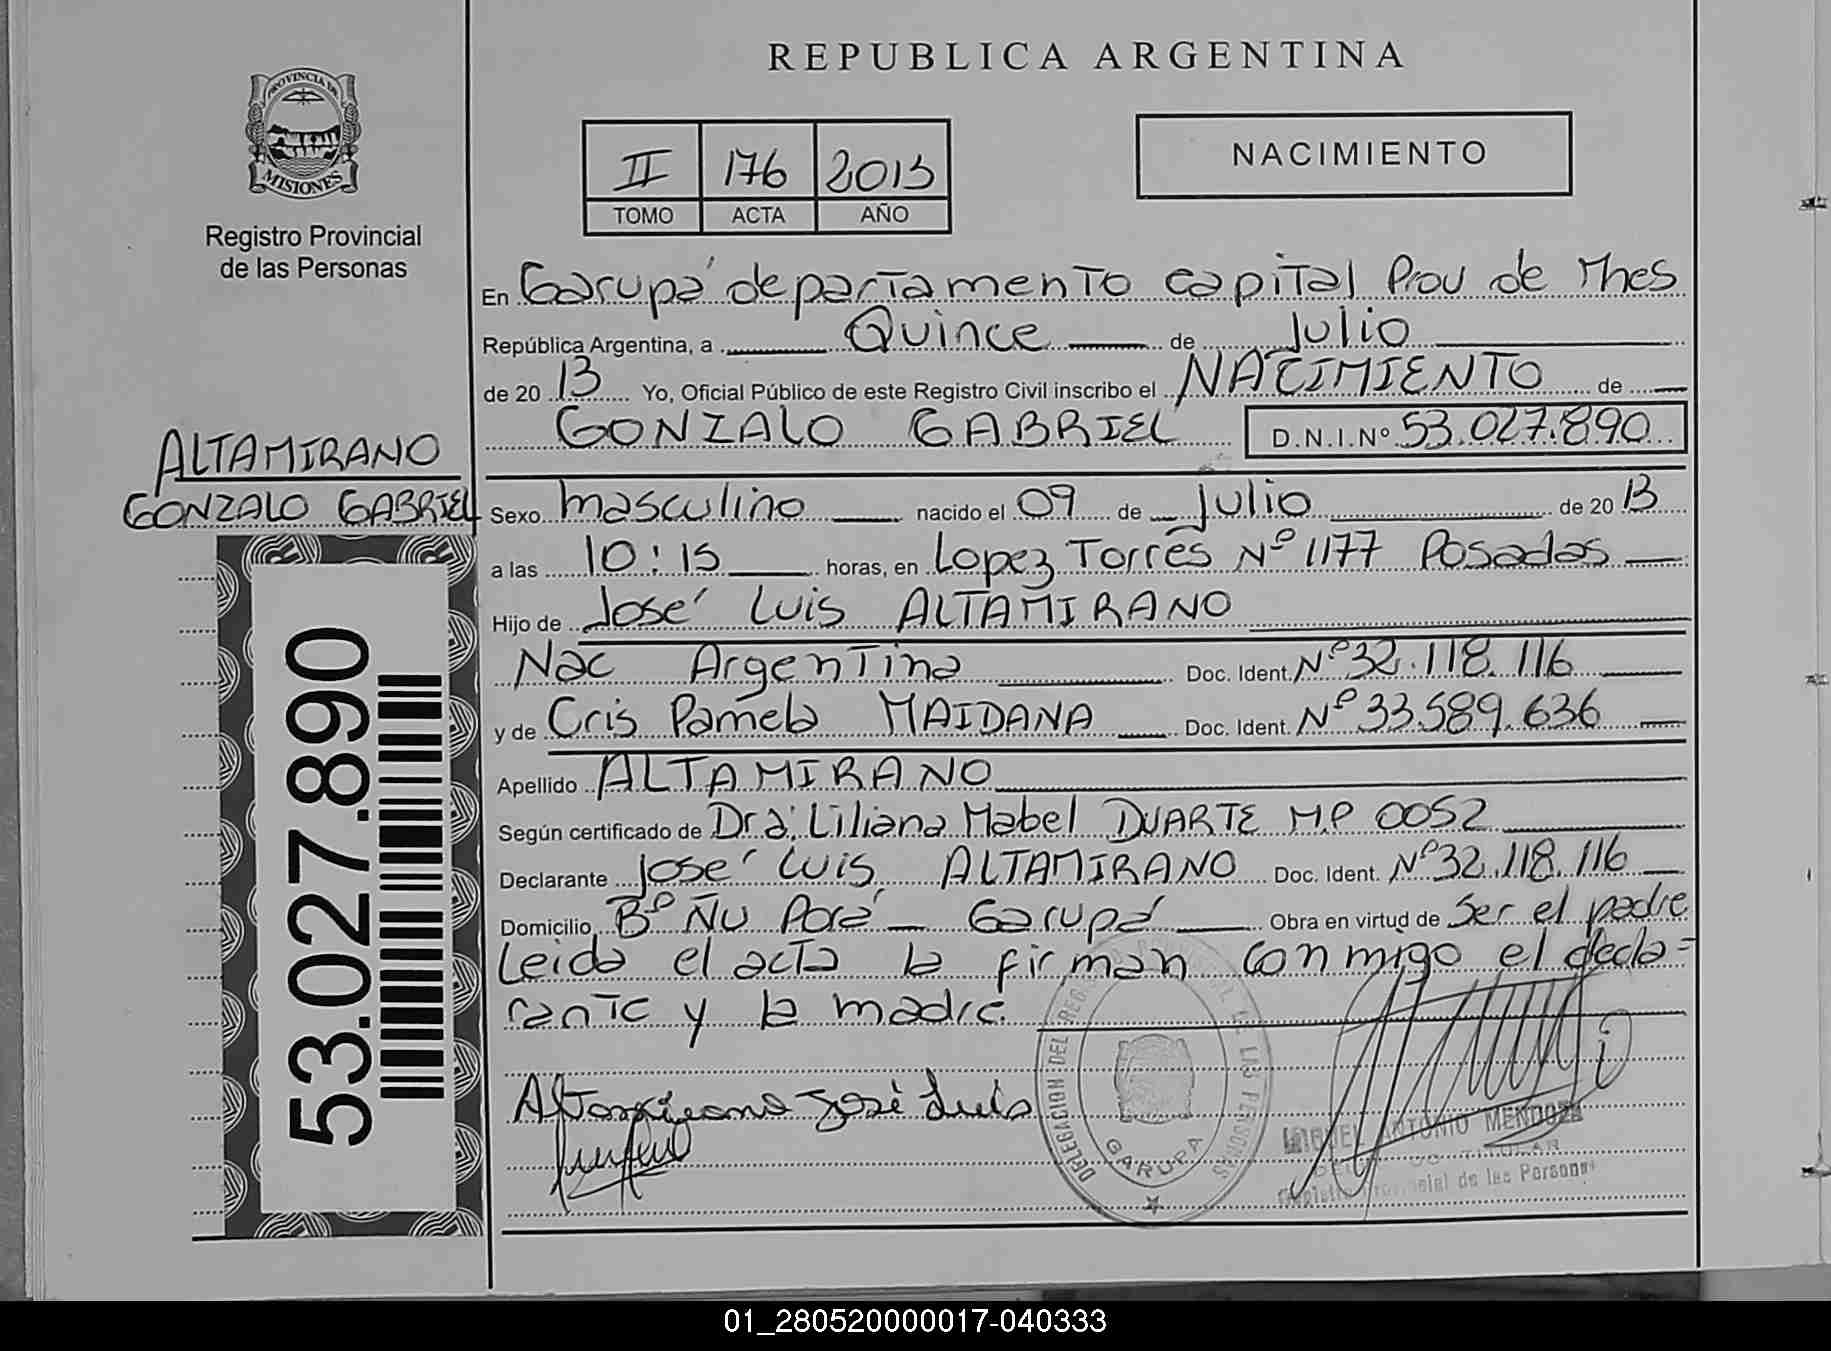 REPUBLICA ARGENTINA
PROVINCIA DE
MISIONES
Registro Provincial
de las Personas
II 176 2013
TOMO ACTA AÑO
NACIMIENTO
En Garupá departamento capital Prov de Mnes
República Argentina, a Quince de Julio
de 20 13 Yo, Oficial Público de este Registro Civil inscribo el NACIMIENTO de
GONZALO GABRIEL D.N.I.Nº 53.027.890
ALTAMIRANO
GONZALO GABRIEL
53.027.890
Sexo masculino nacido el 09 de Julio de 20 13
a las 10:15 horas, en Lopez Torres Nº 1177 Posadas
Hijo de José Luis ALTAMIRANO
Nac Argentina Doc. Ident. Nº 32.118.116
y de Cris Pamela MAIDANA Doc. Ident. Nº 33.589.636
Apellido ALTAMIRANO
Según certificado de Dra. Liliana Mabel DUARTE M.P 0052
Declarante José Luis ALTAMIRANO Doc. Ident. Nº 32.118.116
Domicilio Bº Ñu Porá - Garupá Obra en virtud de Ser el padre
Leida el acta la firman conmigo el decla=
rante y la madre.
Altamirano José Luis
DELEGACION DEL REGISTRO PROVINCIAL DE LAS PERSONAS
GARUPA
MIGUEL ANTONIO MENDOZA
TITULAR
Registro Provincial de las Personas
01_280520000017-040333